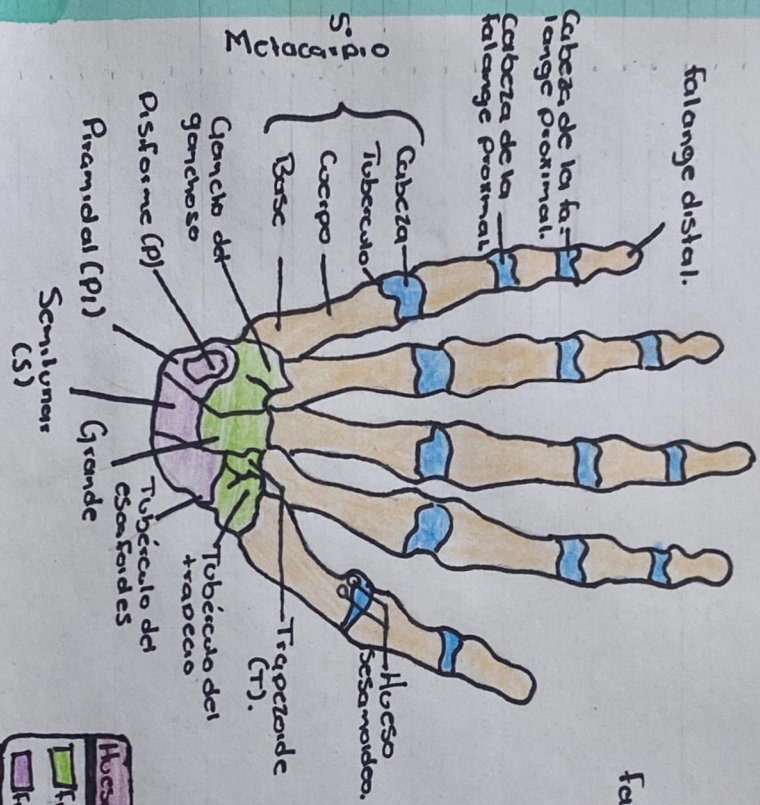 falange distal.
Cabeza de la fa-
lange proximal.
Cabeza de la
falange proximal
5°
Metacarpio
Cabeza
Tubérculo
Cuerpo
Base
Gancho del
ganchoso
Pisforme (P)
Piramidal (Pi)
Semilunar
(S)
Grande
Tubérculo del
escafoides
Tubérculo del
trapecio
Trapezoide
(T).
Hueso
Sesamoideo.